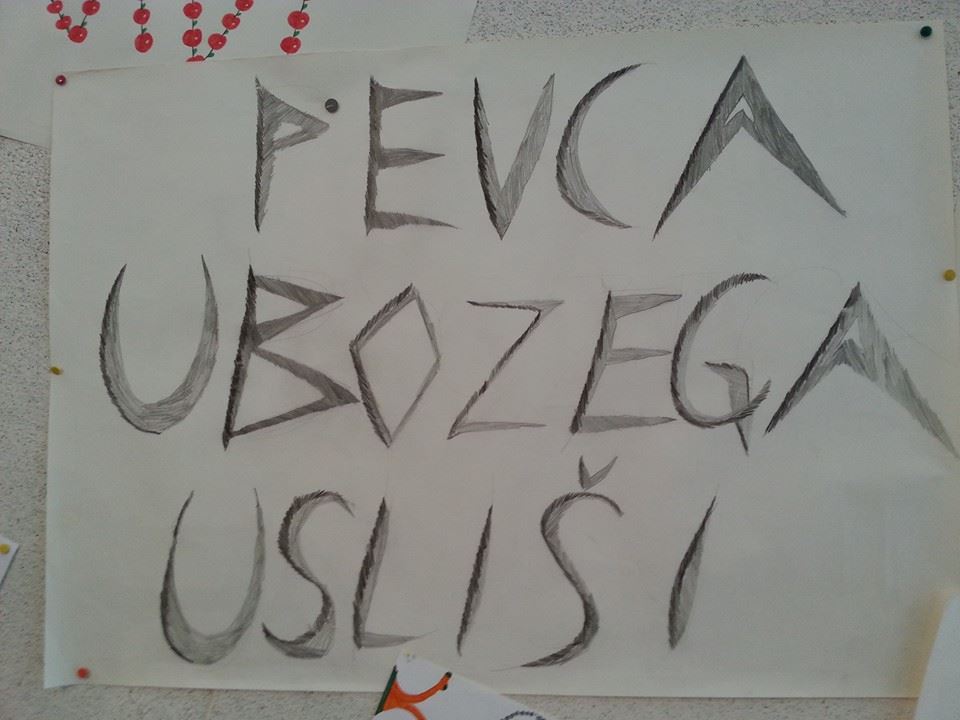 PEVCA
UBOZEGA
USLIŠI